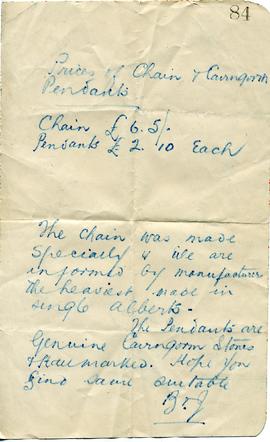 84
Prices of Chain & Cairngorm
Pendants
Chain £6.5/-
Pendants £2.10 Each
The chain was made
specially & we are
informed by manufacturer
the heaviest made in
single Alberts.
The Pendants are
Genuine Cairngorm Stones
& Hall marked. Hope you
find same suitable